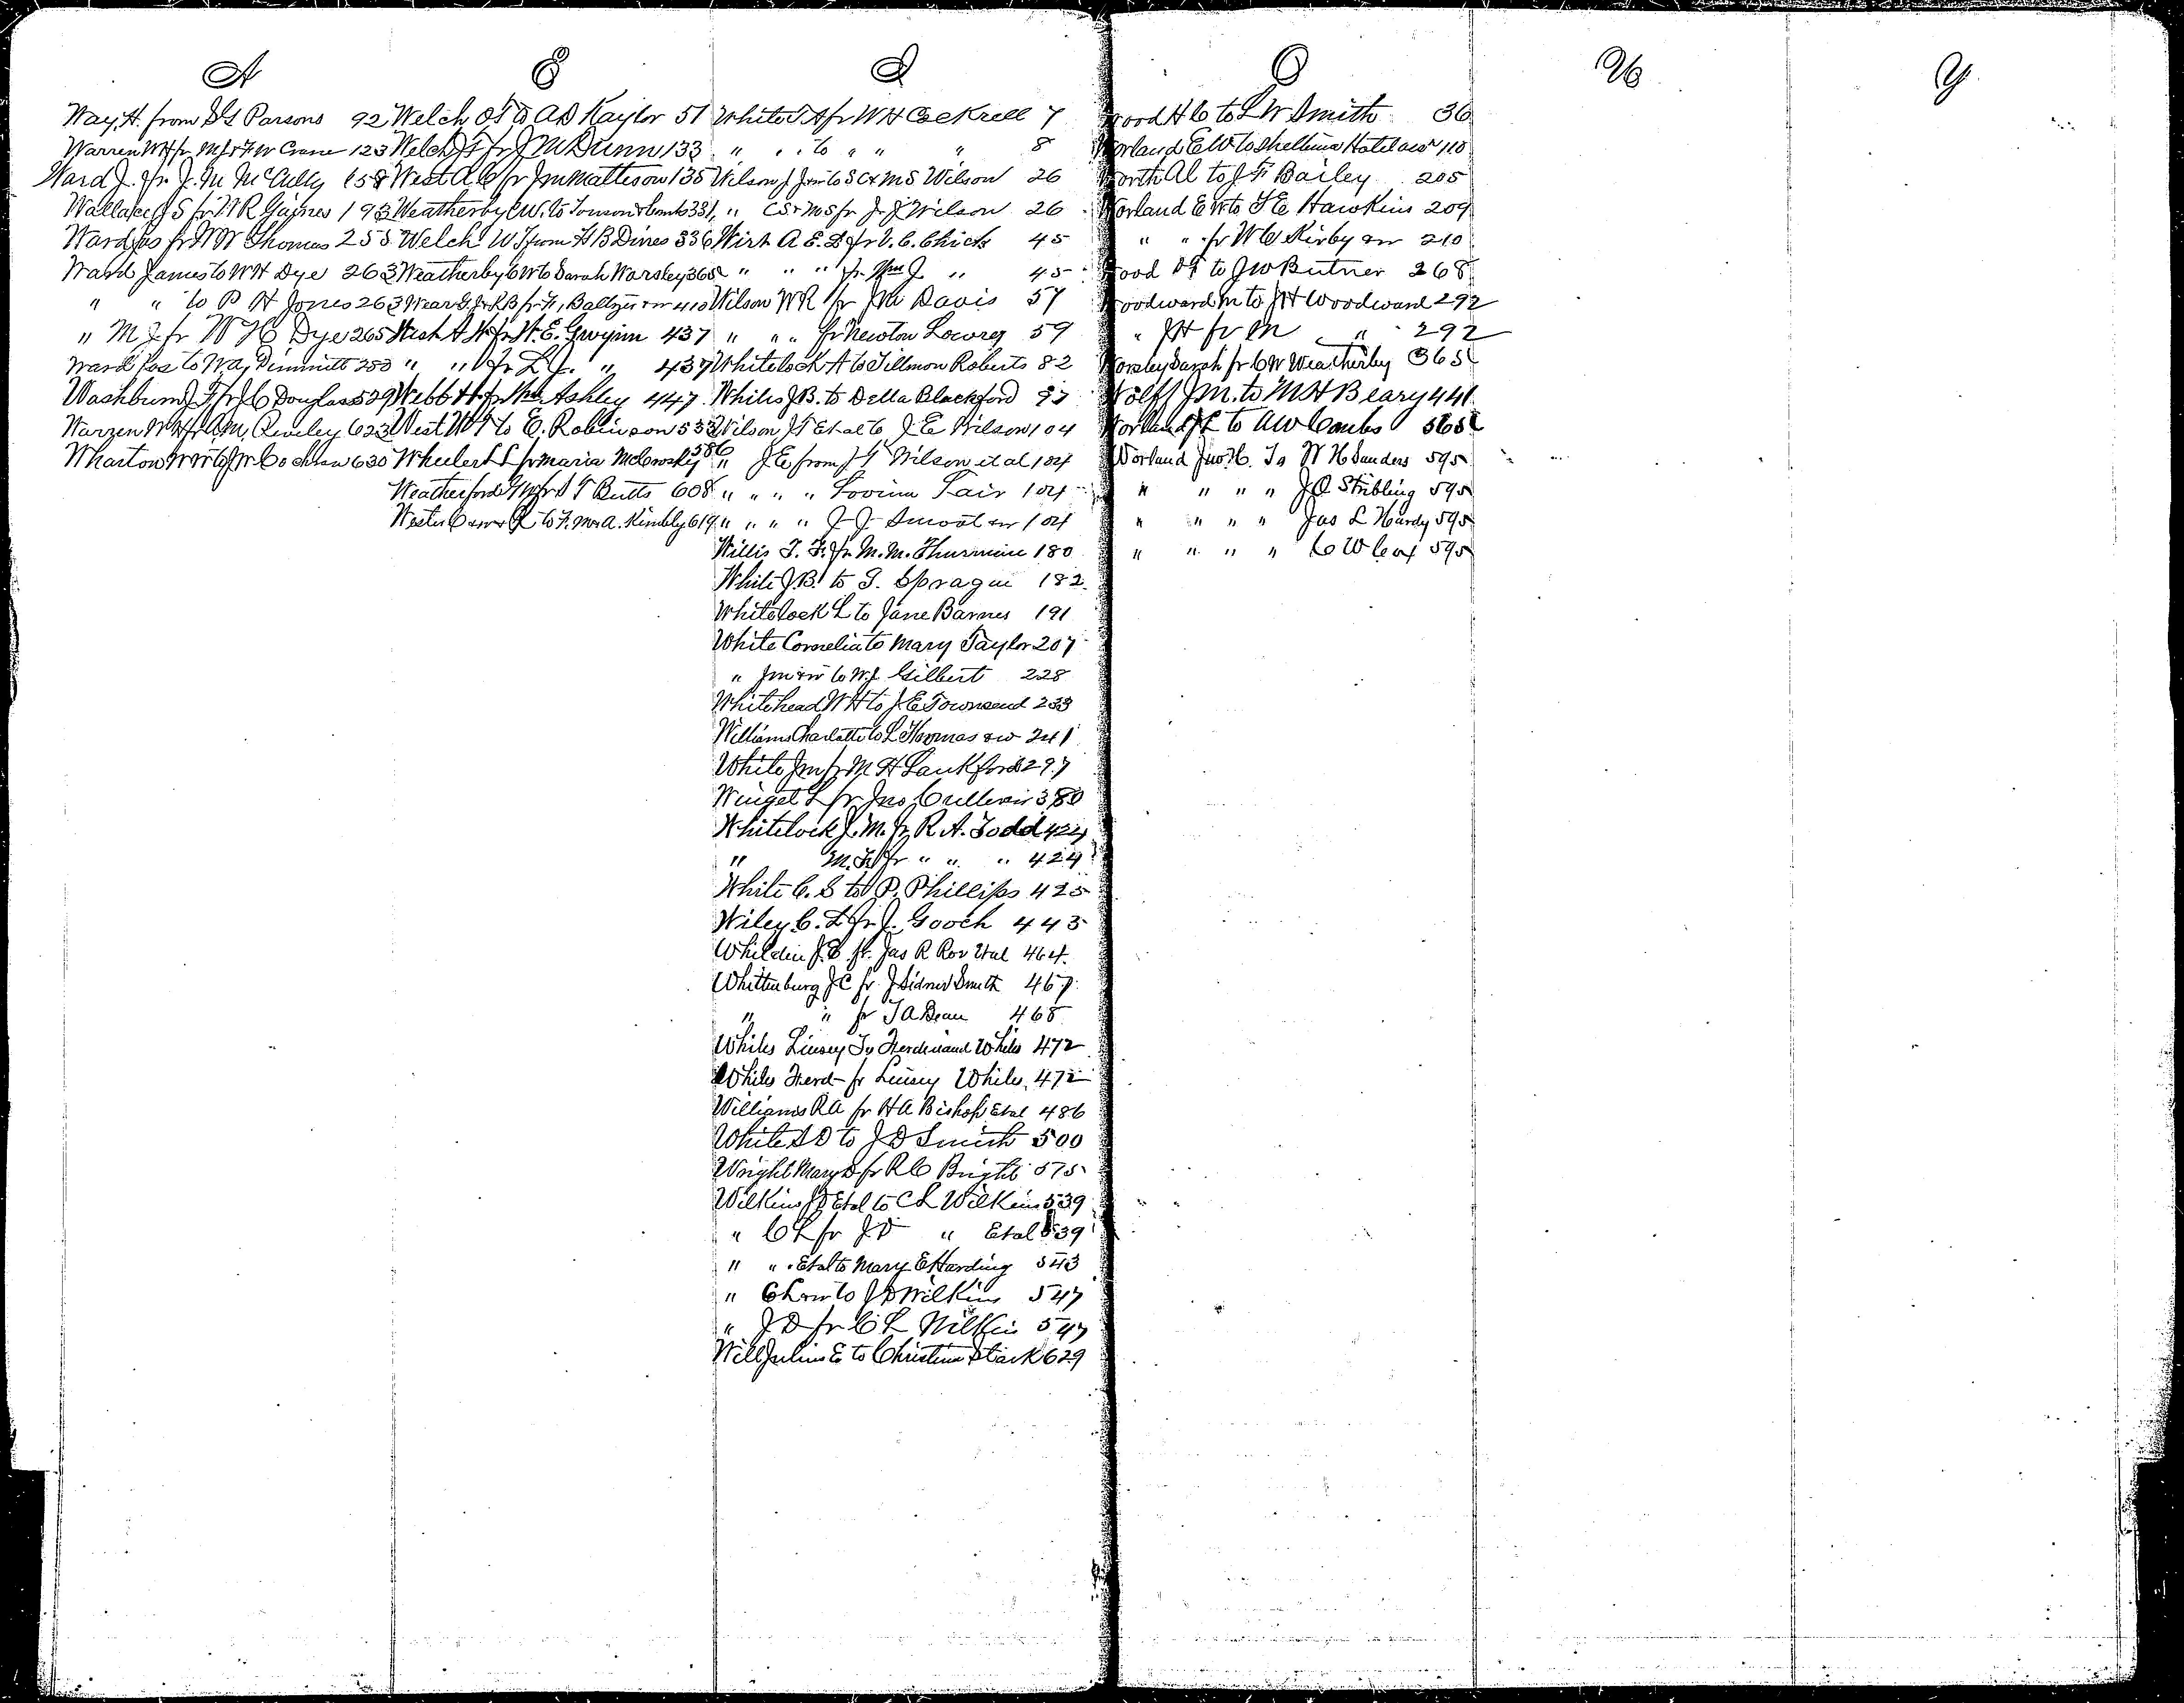 A
Way, H. from S G Parsons 92
Warren W H fr M J & F W Crane 123
Ward J. fr. J. M McCully 158
Wallace J S fr W R Gaines 193
Ward Jas fr W W Thomas 255
Ward James to W H Dye 263
" " to P H Jones 263
" M J fr W H Dye 265
Ward Jas to W A Dimmitt 353
Washburn J T fr J C Douglass 529
Warren W H fr A M Runley 623
Wharton W W to J W Cochran 630
E
Welch O T to A D Kaylor 51
Welch J T fr J M Dunn 133
West A C fr Jm Matteson 135
Weatherby C W. to Tonson & Combs 331
Welch W T from H B Dines 336
Weatherby C W to Sarah Worsley 365
Wear G fr R B fr H, Baltzer 410
West A W fr W. E. Gwyinn 437
" " fr L J. " 437
Webb H fr Wm Ashley 447
West W T to E. Robinson 533
Wheeler S L fr Maria McCrosky 586
Weatherford G W fr S T Butts 608
to F. M & A. Kimbly 619
I
White T A fr W H Cockrell 7
" " to " " " 8
Wilson J J to S C & M S Wilson 26
" C S & M S fr J. J Wilson 26
Wirt A E. D fr V. C. Chick 45
" " " fr. Wm J " 45
Wilson W R fr J M Davis 57
" " " fr Newton Lowrey 59
Whitelock A to Tillmon Roberts 82
Whiles J B. to Della Blackford 93
Wilson J T Etal to J E Wilson 104
" J E from J T Wilson et al 104
" " " " Lovina Fair 104
" " " " J J Smoot 104
Willis T. F. fr M. M. Thurmine 180
White J. B. to S. Sprague 182
Whitelock L to Jane Barnes 191
White Cornelia to Mary Taylor 207
" to W. J. Gilbert 228
Whitehead W H to J E Townsend 233
Williams Charlotte to L Thomas 241
White Jm fr M H Lankford 297
Winget L fr Jno Cullevin 380
Whitelock J. M. fr R. A. Todd 424
" M. F. fr " " " 424
White C. S to P. Phillips 425
Wiley C. L fr J. Gooch 443
Whildin J. B. fr. Jas R Roy Etal 464
Whittenburg J C fr. J Sidner Smith 467
" " fr J A Bean 468
Whiles Linsey To Ferdinand Whiles 472
Whiles Ferd- fr Linsey Whiles, 472
Williams R A fr H A Bishop Etal 486
White S D to J D Smith 500
Wright Mary D fr R C Bright 575
Wilkins J D Etal to C L Wilkins 539
" C L fr J D " Etal 539
" " Etal to Mary E Harding 543
" to J D Wilkins 547
" J D fr C L Wilkin 547
Will Julius E to Christina Stark 629
O
Wood H C to L W Smith 36
Worland E W to Shelbina Hotel 110
Worth Al to J F Bailey 205
Worland E W to J E Hawkins 209
" " fr W C Kirby 210
Wood O T to J W Butner 268
Woodward M to J H Woodward 292
" J H fr M " 292
Worsley Sarah fr C W Weatherby 365
Wolff J M. to M H Beary 441
Worland J L to A W Combs 565
Worland Jno H. To W H Sanders 595
" " " " J O Stribling 595
" " " " Jas L Hardy 595
" " " " 595
U
Y